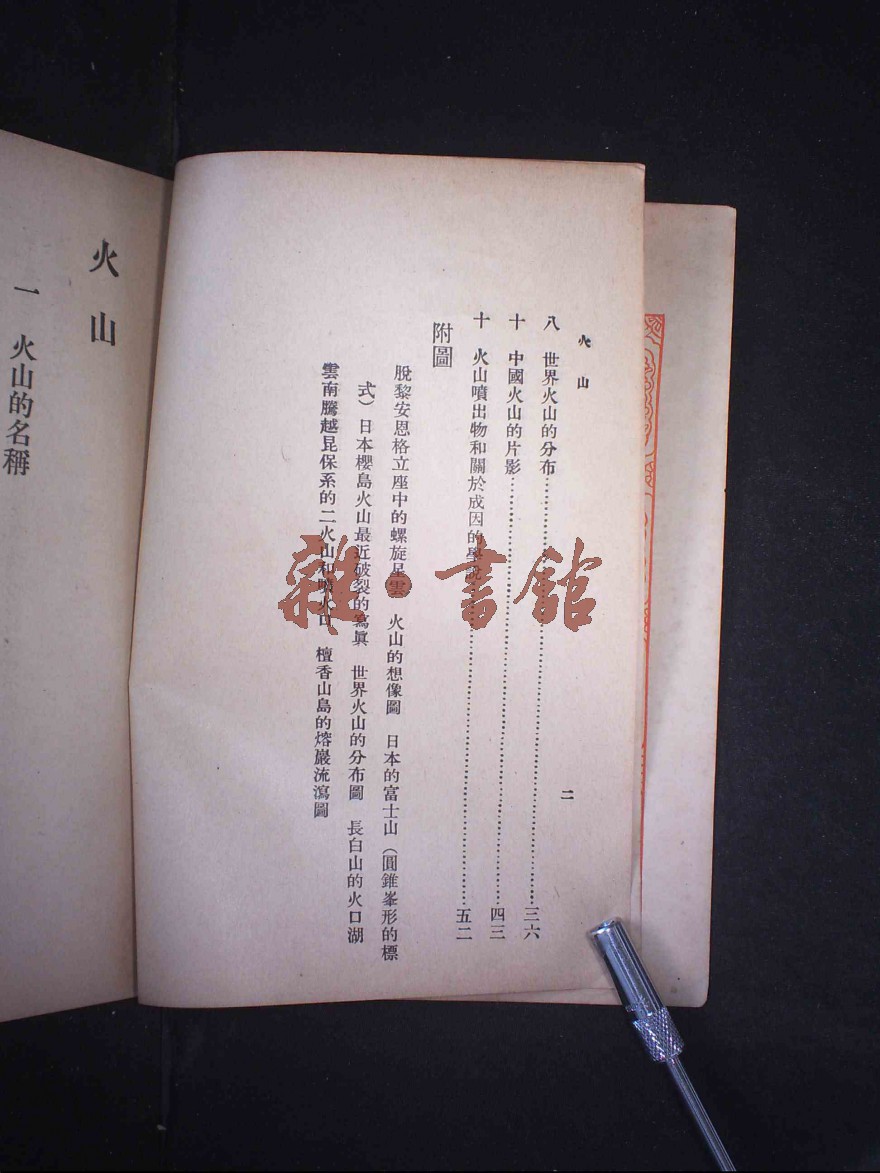 火山
二
八 世界火山的分布……三六
十 中國火山的片影……四三
十 火山噴出物和關於成因的學說……五二
附圖
脫黎安恩格立座中的螺旋星雲 火山的想像圖 日本的富士山（圓錐峯形的標
式）日本櫻島火山最近破裂的寫眞 世界火山的分布圖 長白山的火口湖
雲南騰越昆保系的二火山和噴火口 檀香山島的熔巖流瀉圖
火山
一 火山的名稱
雜·書館